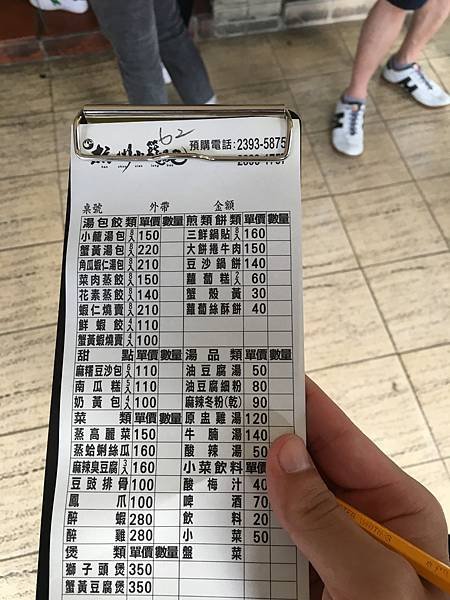 62
杭州小籠湯包
預購電話:2393-5875
2393-1757
桌號 外帶 金額
湯包餃類 單價 數量 煎類餅類 單價 數量
小籠湯包 8入 150 三鮮鍋貼 8入 160
蟹黃湯包 8入 220 大餅捲牛肉 150
角瓜蝦仁湯包 8入 210 豆沙鍋餅 140
菜肉蒸餃 150 蘿蔔糕 60
花素蒸餃 140 蟹殼黃 30
蝦仁燒賣 210 蘿蔔絲酥餅 40
鮮蝦餃 110
蟹黃蝦燒賣 100
甜點 單價 數量 湯品類 單價 數量
麻糬豆沙包 110 油豆腐湯 50
南瓜糕 110 油豆腐細粉 80
奶黃包 100 麻辣冬粉(乾) 90
菜類 單價 數量 原盅雞湯 120
蒸高麗菜 150 牛腩湯 140
蒸蛤蜊絲瓜 160 酸辣湯 50
麻辣臭豆腐 160 小菜飲料 單價
豆豉排骨 100 酸梅汁 40
鳳爪 100 啤酒 70
醉蝦 280 飲料 20
醉雞 280 小菜 50
煲類 單價 數量 盤菜
獅子頭煲 350
蟹黃豆腐煲 350